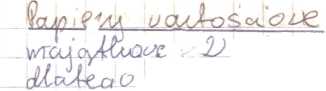 Papiery wartościowe
majątkowe 2)
dlatego